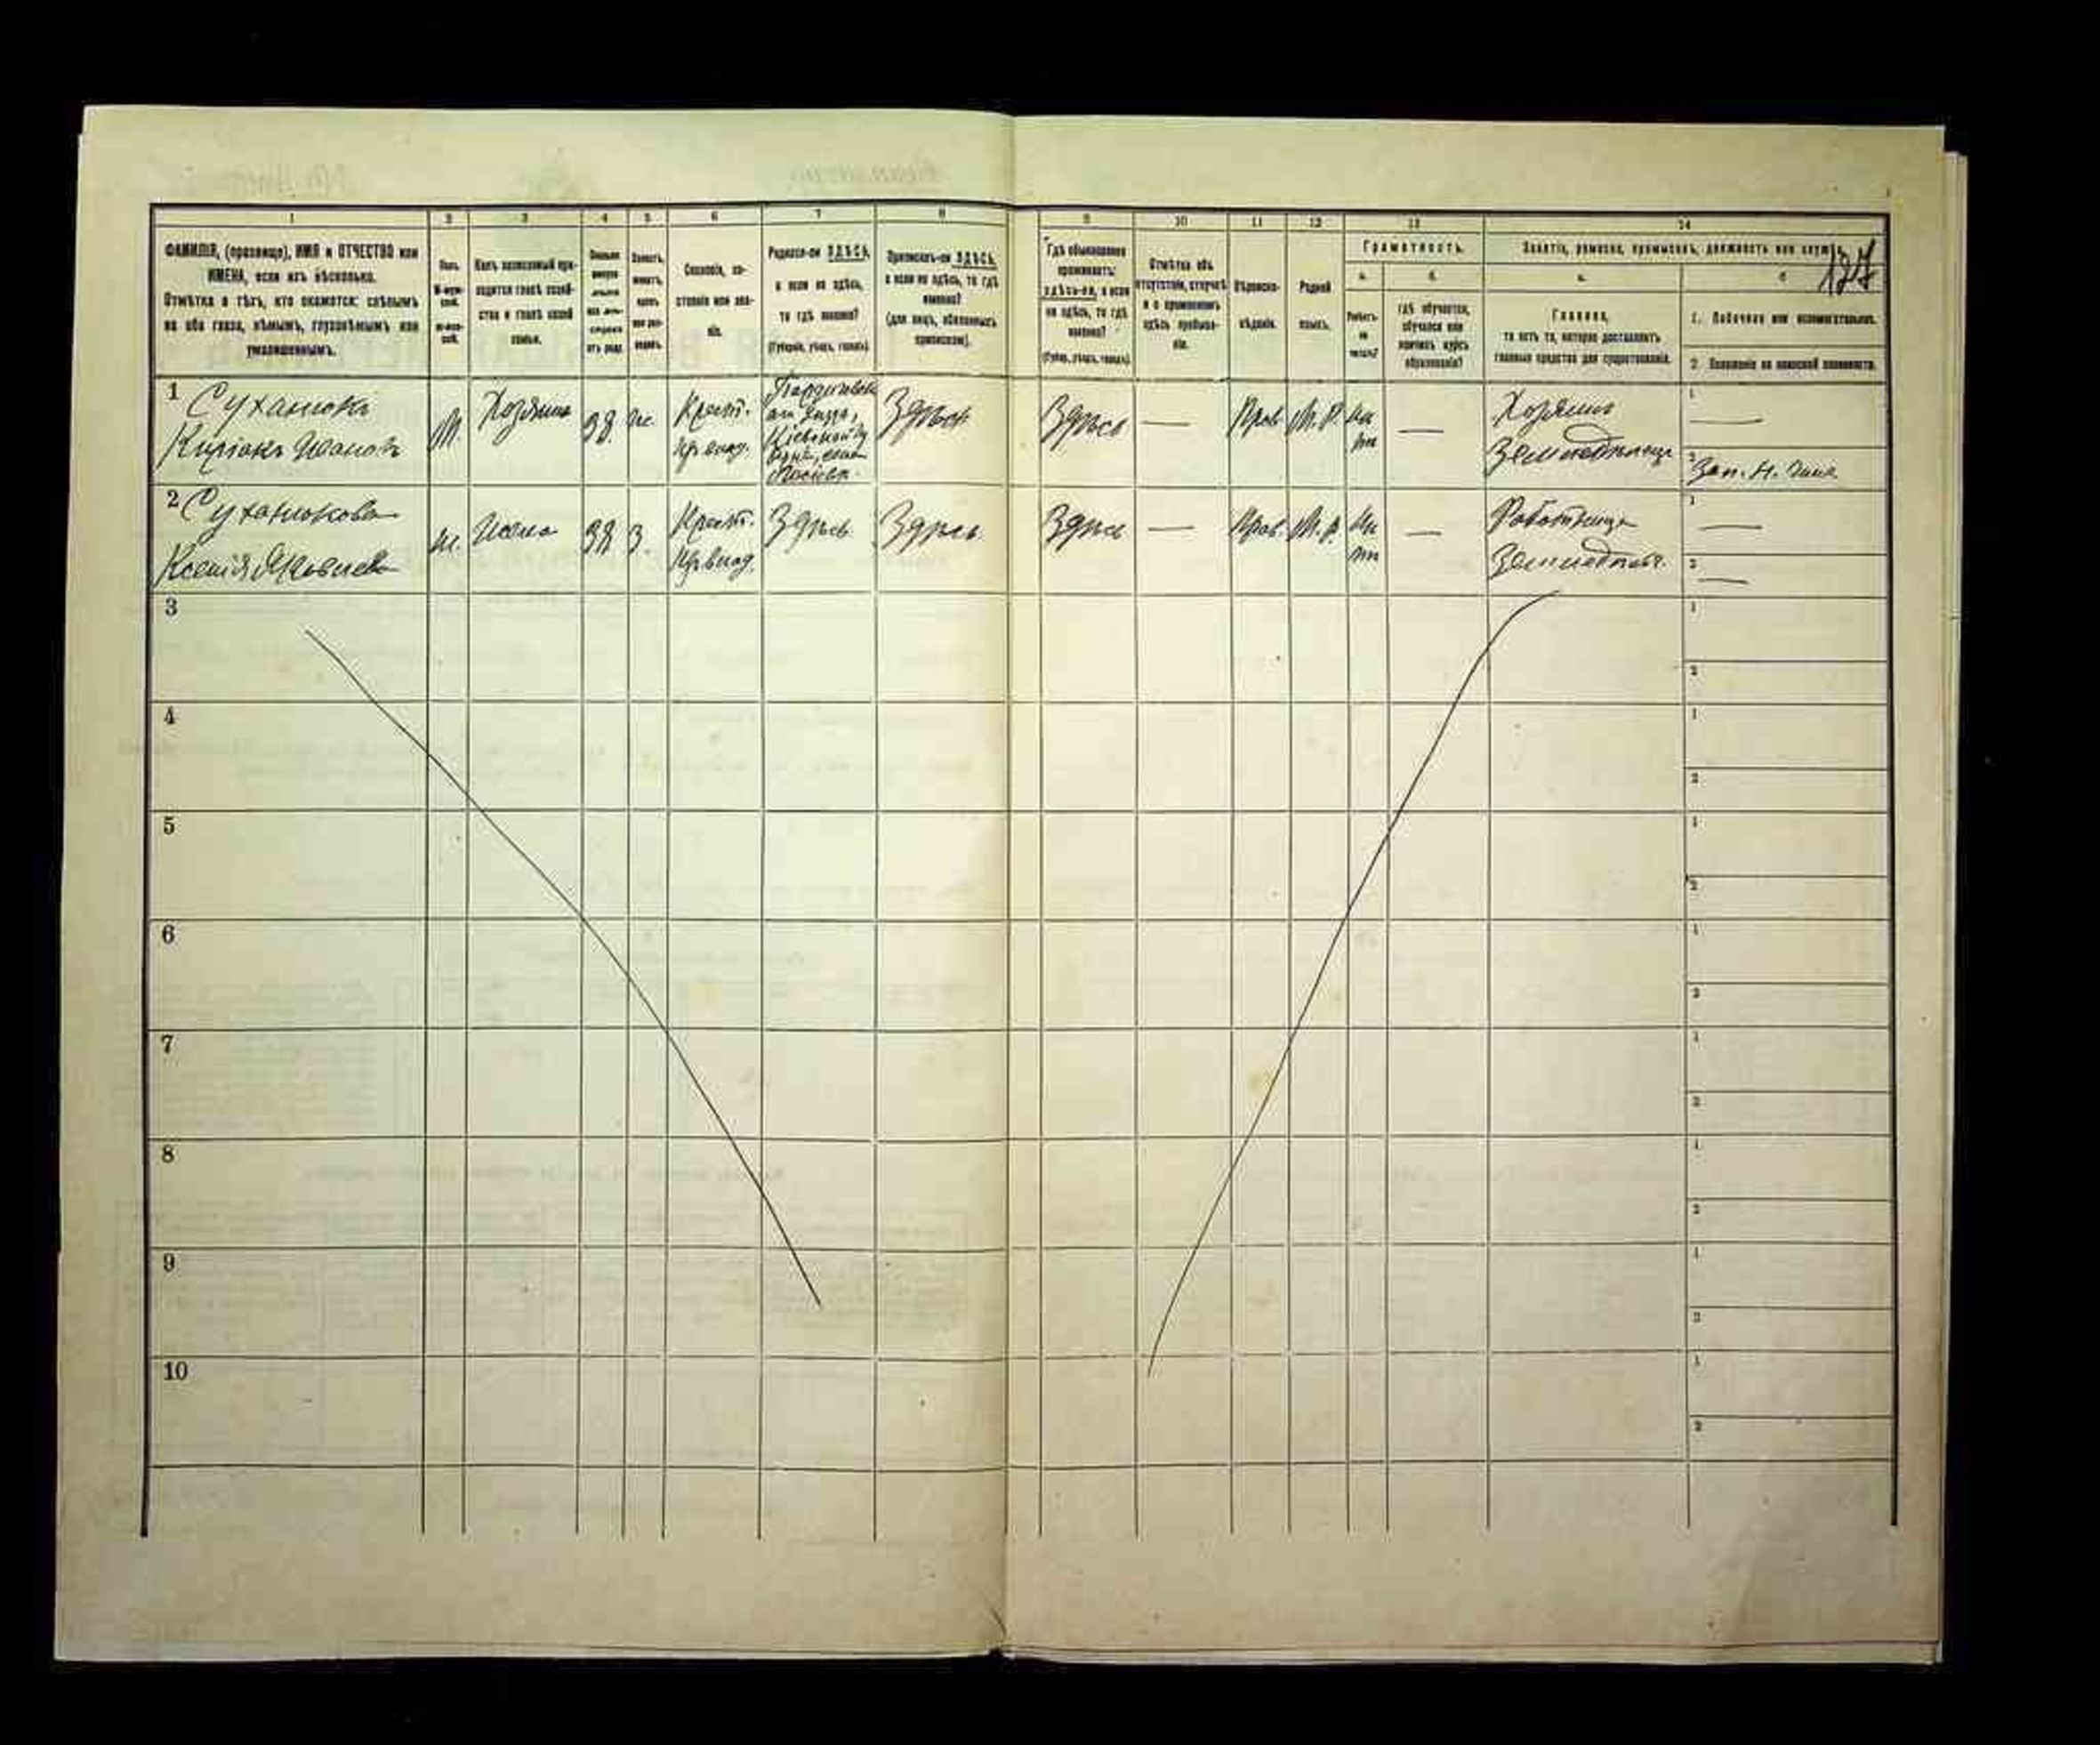 1 2 3 4 5 6 7 8 9 10 11 12 13 14
ФАМИЛІЯ, (прозвище), ИМЯ и ОТЧЕСТВО или
ИМЕНА, если ихъ нѣсколько.
Отмѣтка о тѣхъ, кто окажется: слѣпымъ
на оба глаза, нѣмымъ, глухонѣмымъ или
умалишеннымъ.
Полъ.
М-муж-
ской.
Ж-жен-
ской.
Какъ записанный при-
ходится главѣ хозяй-
ства и главѣ своей
семьи.
Сколько
минуло
лѣтъ
отъ роду
Холостъ,
женатъ,
вдовъ
Сословіе, со-
стояніе или зва-
ніе.
Родился-ли ЗДѢСЬ,
а если не здѣсь,
то гдѣ именно?
(Губернія, уѣздъ, городъ).
Приписанъ-ли ЗДѢСЬ,
а если не здѣсь, то гдѣ
именно?
(для лицъ, обязанныхъ
припискою).
Гдѣ обыкновенно
проживаетъ:
здѣсь-ли, а если
не здѣсь, то гдѣ
именно?
(Губер., уѣздъ, городъ).
Отмѣтка объ
отсутствіи, отлучкѣ
и о временномъ
здѣсь пребыва-
ніи.
Вѣроиспо-
вѣданіе.
Родной
языкъ.
Грамотность.
а. б.
Умѣетъ-
ли
читать?
гдѣ обучается,
обучался или
кончилъ курсъ
образованія?
Занятіе, ремесло, промыселъ, должность или служба.
127
а.
Главное,
то есть то, которое доставляетъ
главныя средства для существованія.
1. Побочное или вспомогательное.
2. Положеніе по воинской повинности.
1 Суханюкъ
Киріакъ Ивановъ
М. Хозяинъ 38 ж.
Крест.
Здѣсь
Здѣсь — Прав. М. Р. —
Хозяинъ
1 —
2 Зап. Н. чина
2 Суханюкова
Ксенія Яковлева
ж. Жена 38 З
Крест.
Здѣсь Здѣсь
Здѣсь — Прав. М. Р. —
Работница
1 —
2 —
3 1
2
4 1
2
5 1
2
6 1
2
7 1
2
8 1
2
9 1
2
10 1
2